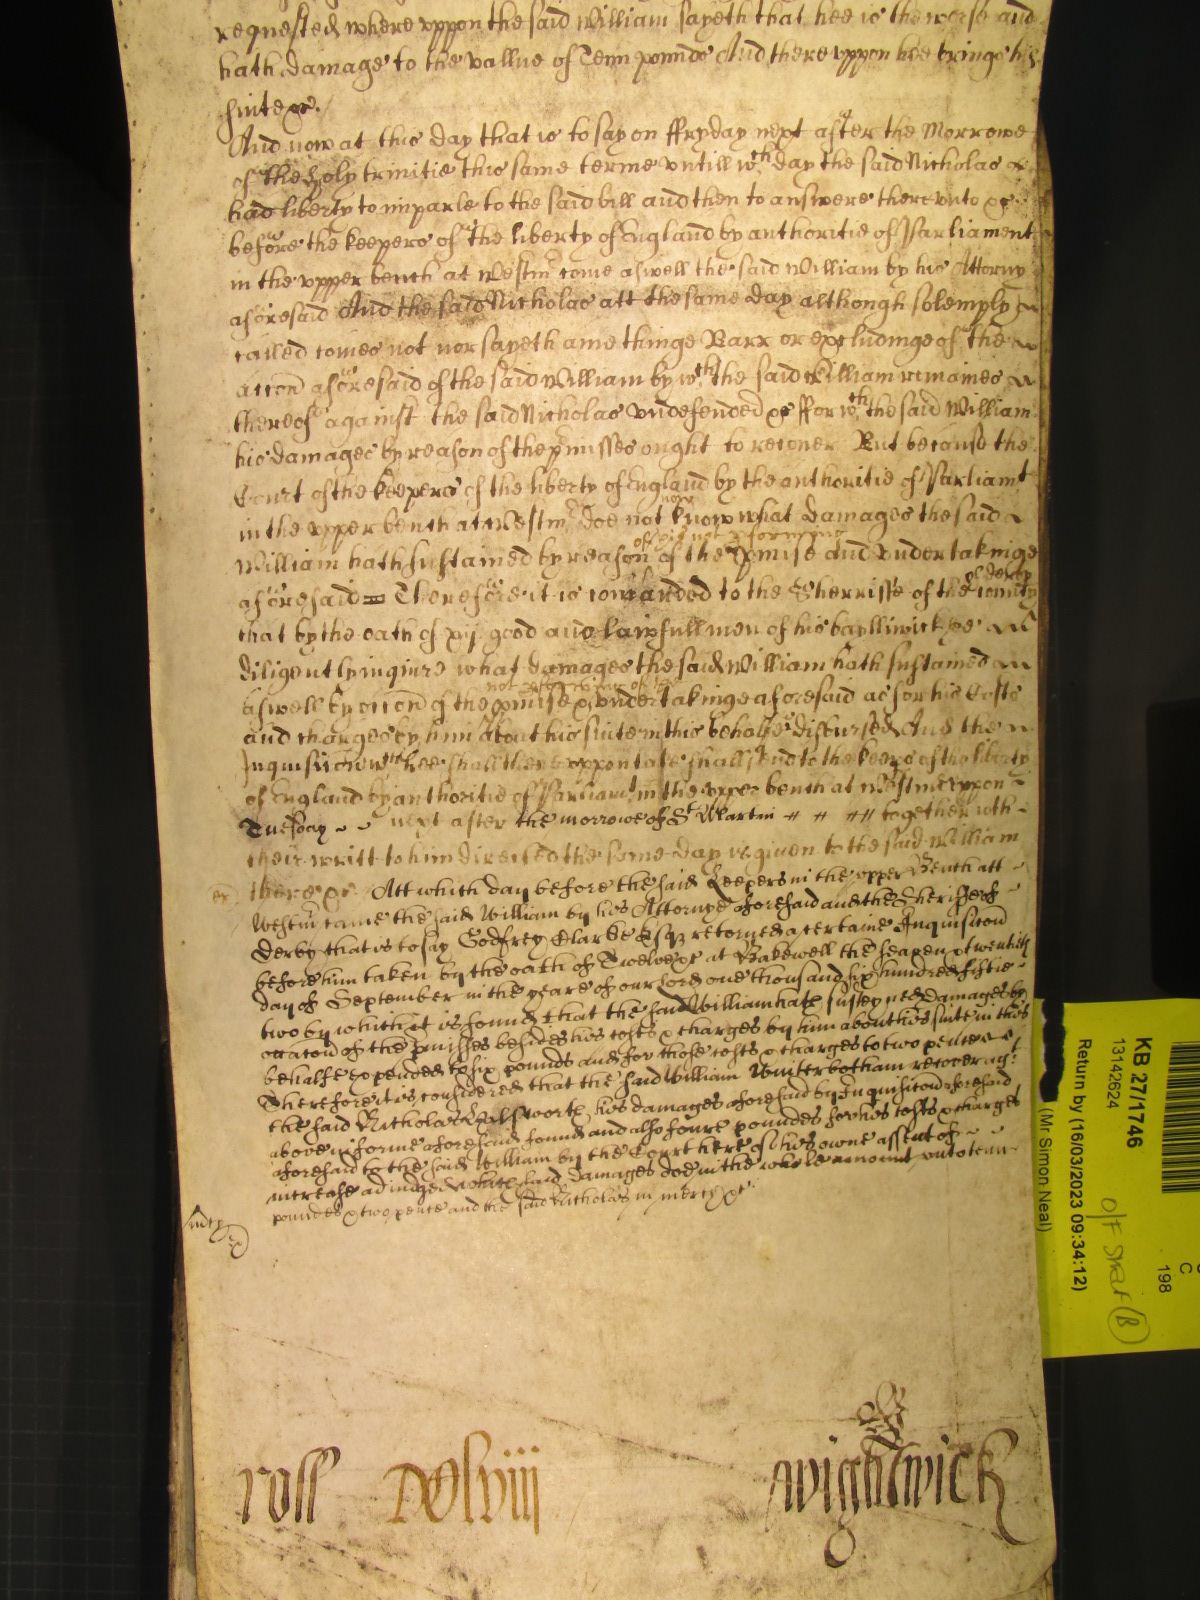 requested where uppon the said William sayeth that hee is the worse and
hath damage to the vallue of Tenn pounds And there uppon hee brings his
suite &c.
And now at this day that is to say on ffryday next after the Morrowe
of the holy trinitie this same terme untill wch day the said Nicholas
had liberty to imparle to the said bill and then to answere thereunto &c
before the keepers of the liberty of England by authoritie of Parliament
in the upper bench at Westmr come aswell the said William by his Attorny
aforesaid And the said Nicholas att the same day although solemply
called comes not nor sayeth anie thinge Barr or excludinge of the
accon aforesaid of the said William by wch the said William remaines
thereof against the said Nicholas undefended &c ffor wch the said William
his damages by reason of the pmisses ought to recover But because the
Court of the keepers of the liberty of England by the authoritie of Parliamt
now
in the upper bench at Westmr doe not know what damages the said
of the not pforming
William hath sustained by reason of the pmise and undertakinge
of derby
aforesaid Therefore it is comanded to the Sherriffe of the county
that by the oath of xij good and lawfull men of his bayliwick hee
diligently inquire what damages the said William hath sustained
not pforming of the
aswell by occon of the pmise & undertakinge aforesaid as for his Costs
and charges by him about his suite in this behalfe disbursed And the
Inquisicon wch hee shall there uppon take shall send to the keeps of the liberty
of England by authoritie of Parliamt in the upper bench at Westmr uppon
Tuesday next after the morrowe of St Martin together with
their writt to him directed the same day is given to the said William
there &c. Att which day before the said Keepers in the upper Bench att
Westmr came the said William by his Attorney aforesaid and the Sheriffe of
Derby that is to say Godfrey Clarke Esqr retorned a certaine Inquisicon
before him taken by the oath of Twelve &c at Bakewell the seaven & twentith
day of September in the yeare of our lord one thousand six hundred fiftie
two by which it is found that the said William hath susteyned damages by
occacon of the pmisses besides his costs & charges by him about his suite in this
behalfe expended to six pounds and for those costs & charges to two pence
Therefore it is considered that the said William Winterbotham recover agt
the said Nicholas his damages aforesaid by Inquisicon aforesaid
above in forme aforesaid found and also foure poundes for his costs & charges
aforesaid to the said William by the Court here of his owne assent of
increase adiudged which said damages doe in the whole amount unto tenn
poundes & two pence and the said Nicholas in mercy &c.
roll DClviii
Wightwick
KB 27/1746
13142624
Return by (16/03/2023 09:34:12)
(Mr Simon Neal)
C
198